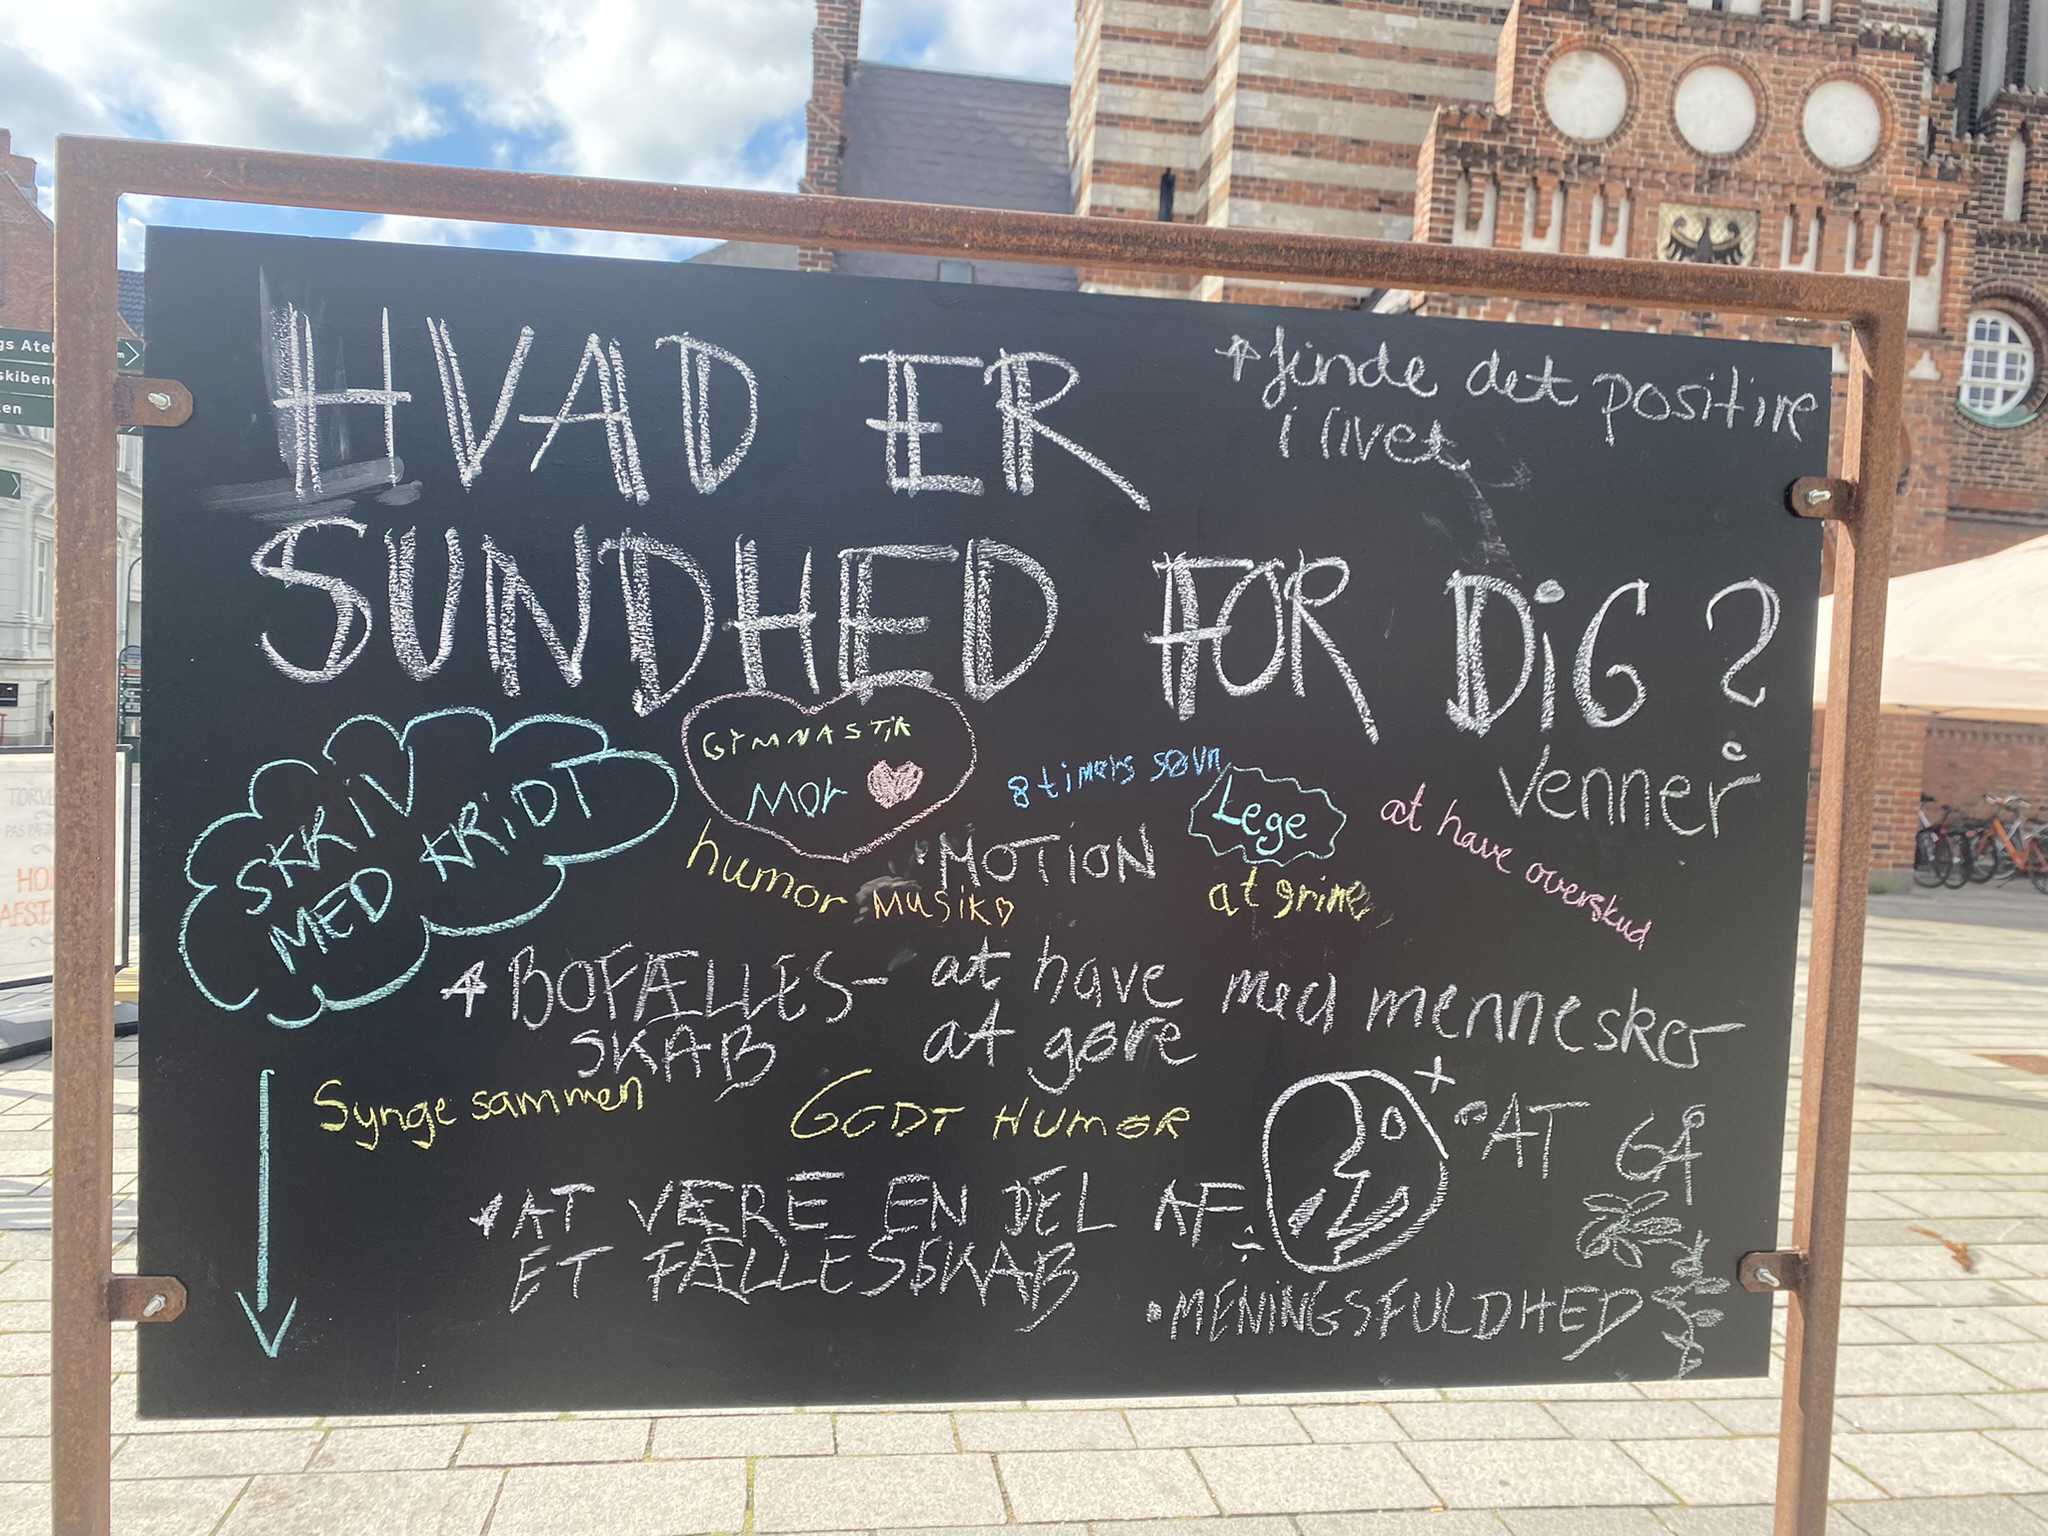 HVAD ER
SUNDHED FOR DIG?
finde det positive
i livet
SKRIV
MED KRIDT
GYMNASTIK
MOR
8 timers søvn
Lege
at have overskud
venner
humor
MUSIK
MOTION
at grine
BOFÆLLES-
SKAB
at have med mennesker
at gøre
Synge sammen
GODT HUMØR
+
AT GÅ
AT VÆRE EN DEL AF
ET FÆLLESSKAB
÷
MENINGSFULDHED